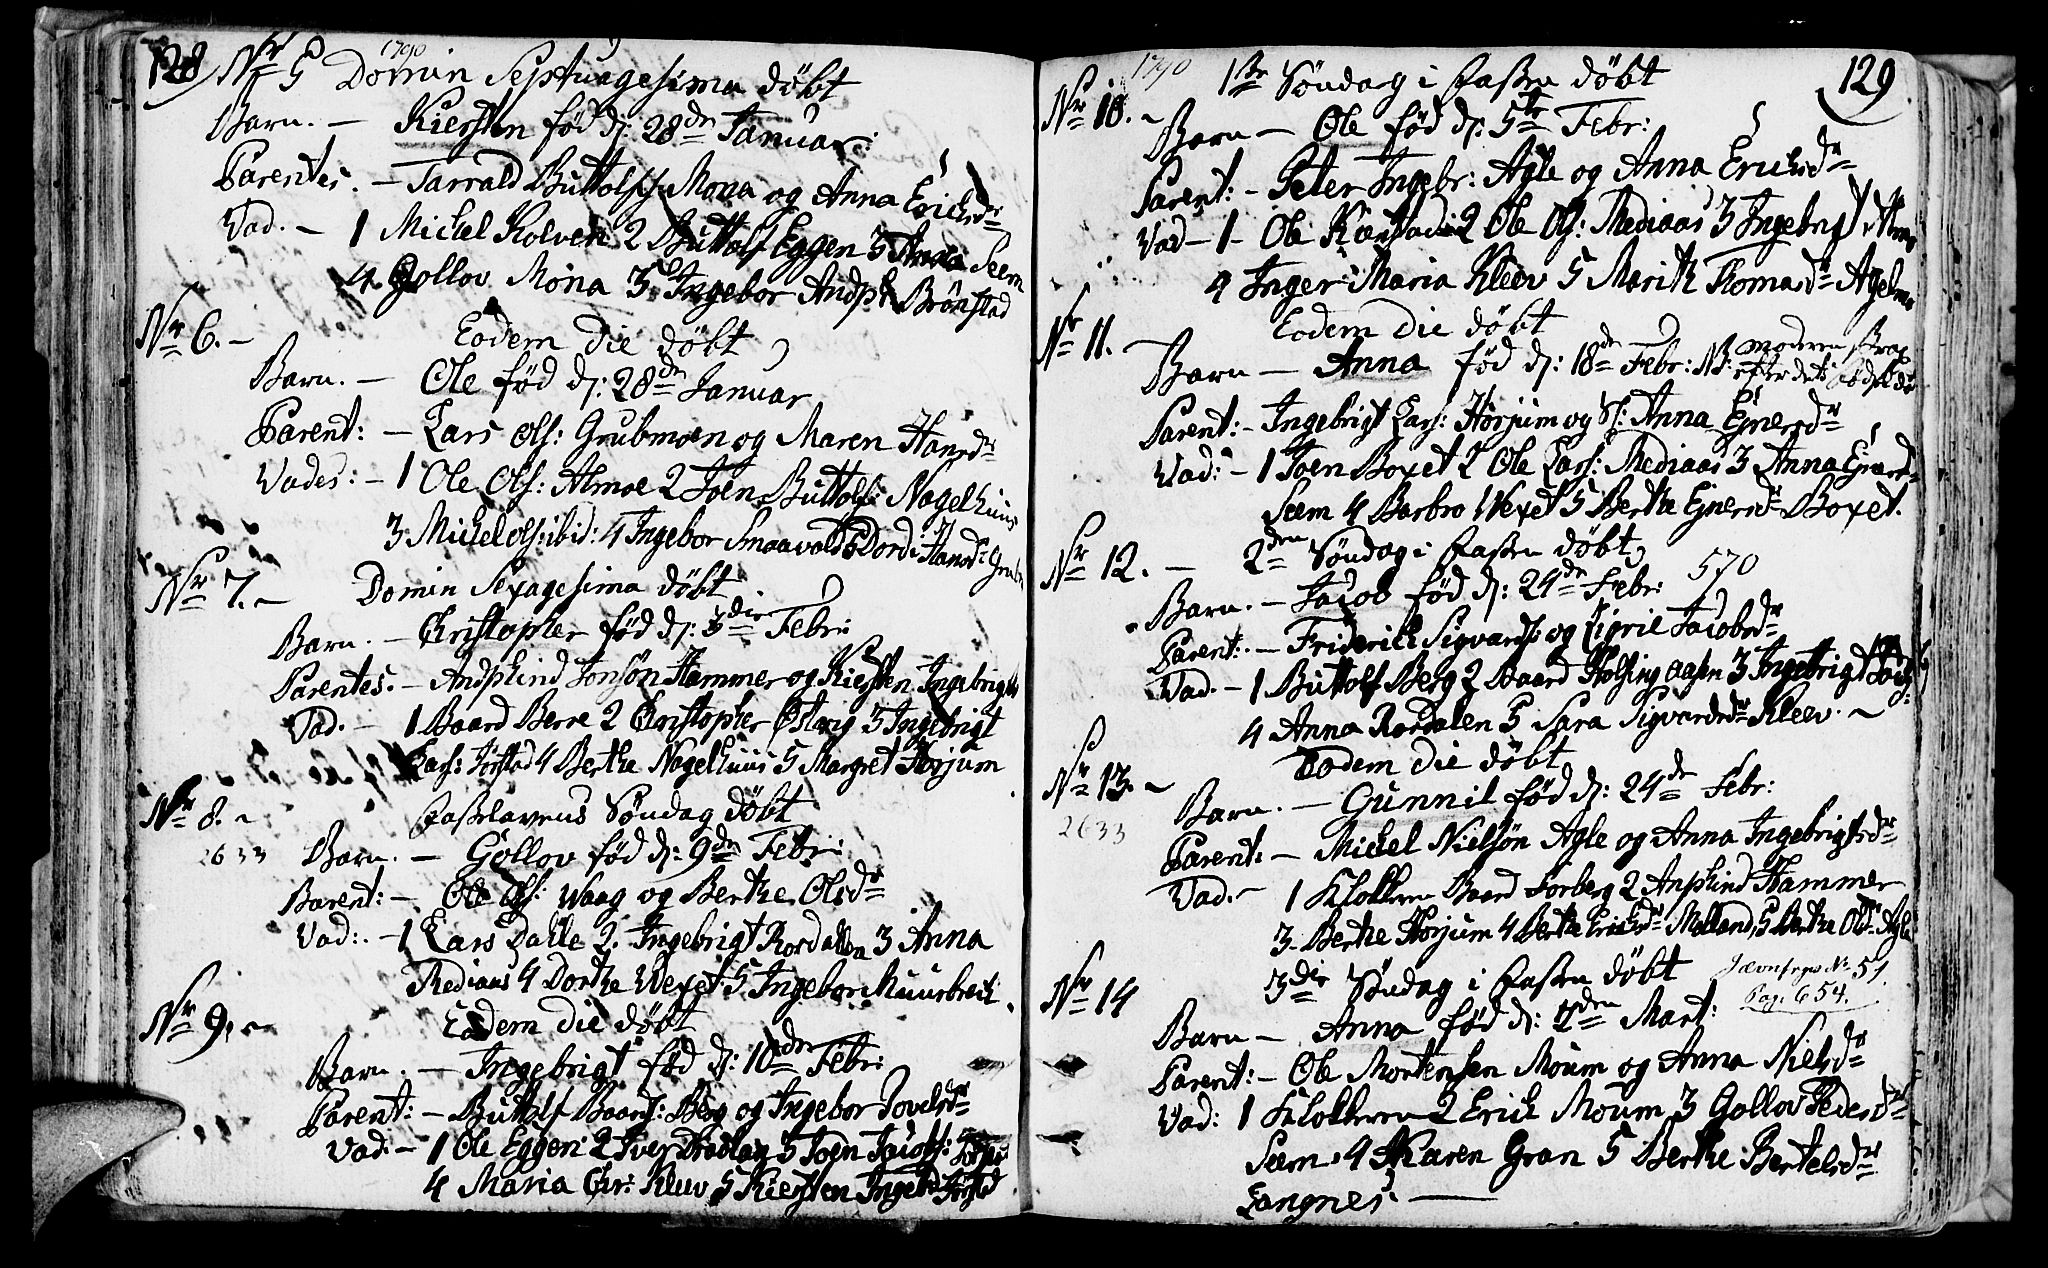 128
1790
Nr 5 Domin Septuagesima döbt
Barn. — Kiersten föd d: 28de Januar:
Parentes. — Tarrald Buttolfs: Mona og Anna Erichsdr
Vad. — 1 Michel Kolven 2 Buttolf Eggen 3 Anna Seem
4 Gollov Mona 5 Ingebor Andph: Brönstad
Nr 6. — Eodem die döbt
Barn. — Ole föd d: 28de Januar
Parent: — Lars Ols: Grubmoen og Maren Hansdr
Vades: — 1 Ole Ols: Almoe 2 Joen Buttolfs: Nagelhuus
3 Michel Ols: ibid: 4 Ingebor Snaavold 5 Dordi Hansdr Grub
Nr 7. — Domin Sexagesima döbt
Barn. — Christopher föd d: 3die Febr:
Parentes. — Andphind Jonsön Hammer og Kiersten Ingebrigts
Vad. — 1 Baard Berre 2 Christopher Östvig 3 Ingebrigt
Lars: Jörstad 4 Berthe Nagelhuus 5 Margret Horjum
Nr 8. — Fastelavens Söndag döbt
2633 Barn. — Gollov föd d: 9de Febr:
Parent: — Ole Ols: Waag og Berthe Olsdr
Vad: — 1 Lars Dalle 2. Ingebrigt Rordallen 3 Anna
Mediaas 4 Dorthe Wexet 5 Ingebor Muusbrech
Nr 9. — Eodem die döbt
Barn. — Ingebrigt föd d: 10de Febr:
Parent: — Buttolf Baards: Berg og Ingebor Povelsdr
Vad. — 1 Ole Eggen 2 Iver 3 Joen Jacobs:
4 Maria Chr: Kleev 5 Kiersten
129
1790
Nr 10. — 1ste Söndag i Fasten döbt
Barn — Ole föd d: 5te Febr:
Parent: — Peter Ingebr: Agle og Anna Erichsdr
Vad — 1 Ole 2 Ole Ols: Mediaas 3 Ingebrigt
4 Inger Maria Kleev 5 Marith Thomasdr
Nr 11. — Eodem die döbt
Barn — Anna föd d: 18de Febr: NB: moderen strax
efter dets födsel döde
Parent: — Ingebrigt Lars: Horjum og S: Anna Ejnersdr
Vad: — 1 Joen Boxet 2 Ole Lars: Mediaas 3 Anna Ejnersdr
Seem 4 Barbro Wexet 5 Berthe Ejnersdr Boxet.
Nr 12. — 2den Söndag i Fasten döbt
570
Barn. — Jacob föd d: 24de Febr:
Parent: — Friderich Sigvards: og Zigrie Jacobsdr
Vad. — 1 Buttolf Berg 2 Baard Holsing aasen 3 Ingebrigt
4 Anna Rordalen 5 Sara Sigvardsdr Kleev. —
Nr 13. — Eodem die döbt
2633 Barn. — Gunnil föd d: 24de Febr:
Parent: — Michel Nielsön Agle og Anna Ingebrigtsdr
Vad. — 1 Klokkeren Baard Sorberg 2 Anphind Hammer
3 Berthe Horjum 4 Berthe Erichsdr Molland, 5 Berthe Olsdr Agle
Nr 14 3die Söndag i Fasten döbt Jævnfrgs No 51.
Pag. 654.
Barn — Anna föd d: 2den Mart:
Parent: — Ole Mortensen Moum og Anna Nielsdr
Vad: 1 Klokkeren 2 Erich Moum 3 Gollov Pedersdr
Seem 4 Karen Gran 5 Berthe Bertelsdr
Langnes. —